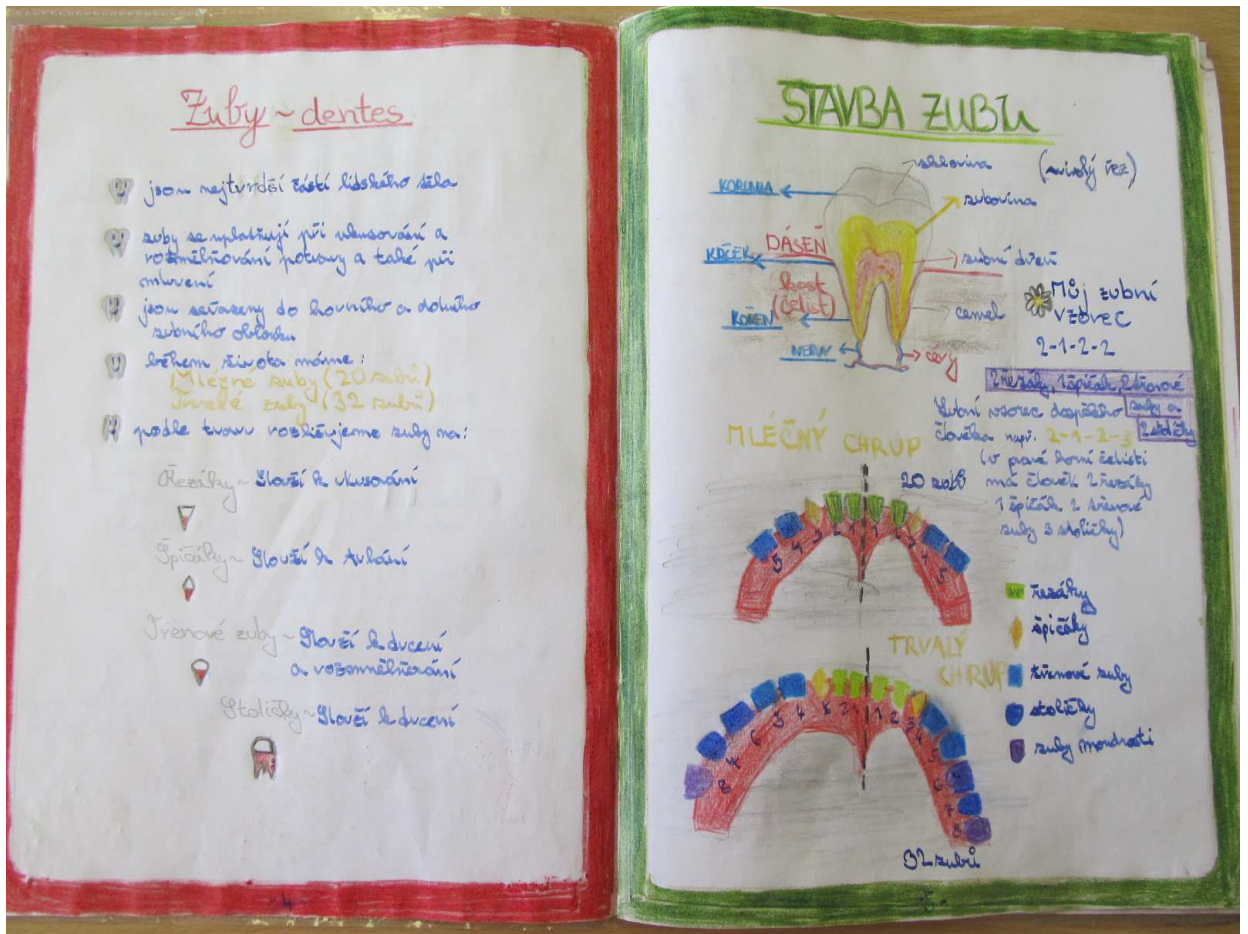 Zuby ~ dentes
jsou nejtvrdší částí lidského těla
zuby se uplatňují při ukusování a
rozmělňování potravy a také při
mluvení
jsou seřazeny do horního a dolního
zubního oblouku
během života máme:
Mléčné zuby (20 zubů)
Trvalé zuby (32 zubů)
podle tvaru rozlišujeme zuby na:
Řezáky ~ Slouží k ukusování
Špičáky ~ Slouží k trhání
Třenové zuby ~ Slouží k drcení
a rozmělňování
Stoličky ~ Slouží k drcení
- 4 -
STAVBA ZUBŮ
sklovina
(svislý řez)
KORUNKA
zubovina
DÁSEŇ
KRČEK
zubní dřeň
kost
(čelist)
KOŘEN
cement
NERVY
cévy
Můj zubní
vzorec
2-1-2-2
2 řezáky, 1 špičák, 2 třenové
zuby a
2 stoličky
Zubní vzorec dospělého
člověka např. 2-1-2-3
(v pravé horní čelisti
má člověk 2 řezáky
1 špičák 2 třenové
zuby 3 stoličky)
MLÉČNÝ CHRUP
20 zubů
5 4 3 2 1 1 2 3 4 5
řezáky
špičáky
třenové zuby
stoličky
zuby moudrosti
TRVALÝ
CHRUP
8 7 6 5 4 3 2 1 1 2 3 4 5 6 7 8
32 zubů
- 5 -